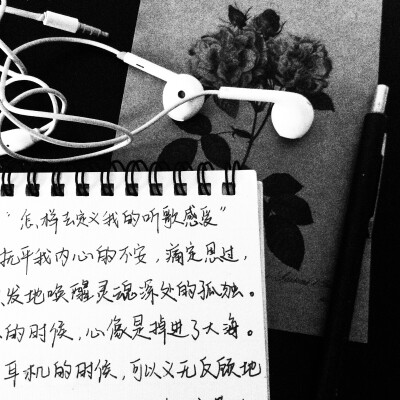 “怎样去定义我的听歌感受”
抗平我内心的不安，痛定思过，
发地唤醒灵魂深处的孤独。
的时候，心像是掉进了大海。
耳机的时候，可以义无反顾地